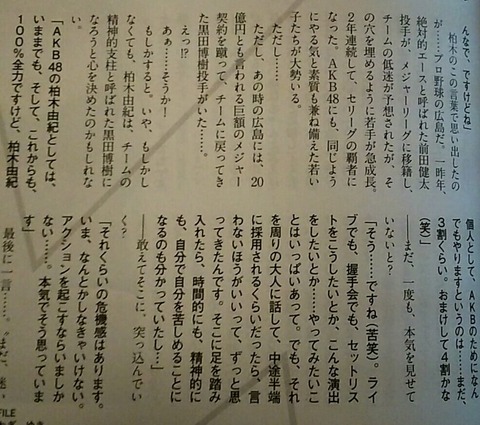 んなで、ですけどね」
　柏木のこの言葉で思い出したの
が……プロ野球の広島だ。一昨年、
絶対的エースと呼ばれた前田健太
投手が、メジャーリーグに移籍し、
チームの低迷が予想されたが、そ
の穴を埋めるように若手が急成長。
2年連続して、セリーグの覇者に
なった。AKB48にも、同じよう
にやる気と素質も兼ね備えた若い
子たちが大勢いる。
　ただし……。
　ただし、あの時の広島には、20
億円とも言われる巨額のメジャー
契約を蹴って、チームに戻ってき
た黒田博樹投手がいた……。
　えっ!?
　あぁ……そうか！
　もしかすると。いや、もしかし
なくても、柏木由紀は、チームの
精神的支柱と呼ばれた黒田博樹に
なろうと心を決めたのかもしれな
い。
「AKB48の柏木由紀としては、
いままでも、そして、これからも、
100％全力ですけど、柏木由紀
個人として、AKBのためになん
でもやりますというのは……まだ、
3割くらい。おまけして4割かな
（笑）」
――まだ、一度も、本気を見せて
いないと？
「そう……ですね（苦笑）。ライ
ブでも、握手会でも、セットリス
トをこうしたいとか、こんな演出
をしたいとか……やってみたいこ
とはいっぱいあって。でも、それ
を周りの大人に話して、中途半端
に採用されるくらいだったら、言
わないほうがいいって、ずっと思
ってきたんです。そこに足を踏み
入れたら、時間的にも、精神的に
も、自分で自分を苦しめることに
なるのも分かっていたし…」
――敢えてそこに、突っ込んでい
く？
「それくらいの危機感はあります。
いま、なんとかしなきゃいけない。
アクションを起こすならいましか
ない……。本気でそう思っていま
す」
　最後に一言……。"まだ、迷い
FILE